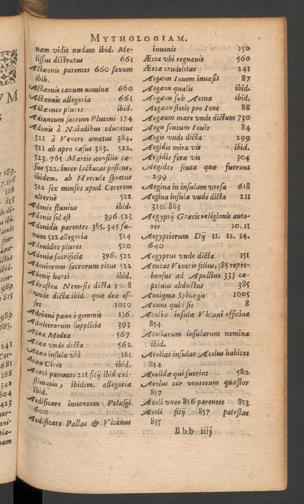 MYTHOLOGIAM.
nam vidit nudam ibid. Me-
lissus dictatus 661
Actæonis parentes 660 sexum
ibib.
Actæonis canum nomina 660
Actæonis allegoria 661
Actæones plures ibid.
Adiantum sacrum Plutoni 174
Adonis à Naiadibus educatus
521 à Venere amatus 384.
521 ab apro cæsus 383. 522.
523. 765 Martis consilio cæ-
sus 522. inter lactucas positus,
ibidem. ab Hercule spretus
522 sex menses apud Cererem
alternè 522
Adonis fluuius ibid.
Adonis sol est 396. 523
Adonidis parentes 385. 345 fu-
nus 522 allegoria 524
Adonides plures 520
Adonia sacrificia 396. 522
Adoniorum sacrorum ritus 522
Adonij horti ibid.
Adrastea Nemesis dicta
vnde dicta ibid. quæ dea est
1019
Adriani pauus gemmis 136
Adulterorum supplicia 393
Aea Medea 567
Aeaea vnde dicta 562
Aeaea insula vbi 161
Aeaea Circe ibid.
Aeaci parentes 211 filij ibid exi-
stimatio, ibidem. allegoria
ibid.
Aedificare inuentum Pelasgi
600
Aedificare Pallas & Vlcanus
inuenit 150
Aeeta vbi regnauit 560
Aeetæ crudelitas 241
Aegæon Iouem inuasit 87
Aegæon qualis ibid.
Aegæon sub Aetna ibid.
Aegæon stetit pro Ioue 88
Aegæum mare vnde dictum 730
Aegon senium Iouis 84
Aegis vnde dicta 299
Aegidis mira vis ibid.
Aegidis fera vis 304
Aegides scuta quæ fuerunt
Aegina in insulam versa 618
Aegina insula vnde dicta 211
310. 883
Aegyptij Græcis religionis auto-
res 10. 11
Aegyptiorum Dij 11. 12. 14.
640
Aegyptus vnde dicta 151
Aeneas Veneris filius, 385 repre-
hensus ad Apolline 333 ca-
ptiuus abductus 385
Aenigma Sphingis 1005
Aeolus quis sit 8
Aeoliæ insulæ Vlcani officina
854
Aeoliarum insularum nomina
ibid.
Aeolias insulas Aeolus habitat
854
Aeolidæ qui fuerint 580
Aeolus cur ventorum quæstor
857
Aeoli vxor 856 parentes 853
Aeoli filij 857 potestas
855
Bbb iiij